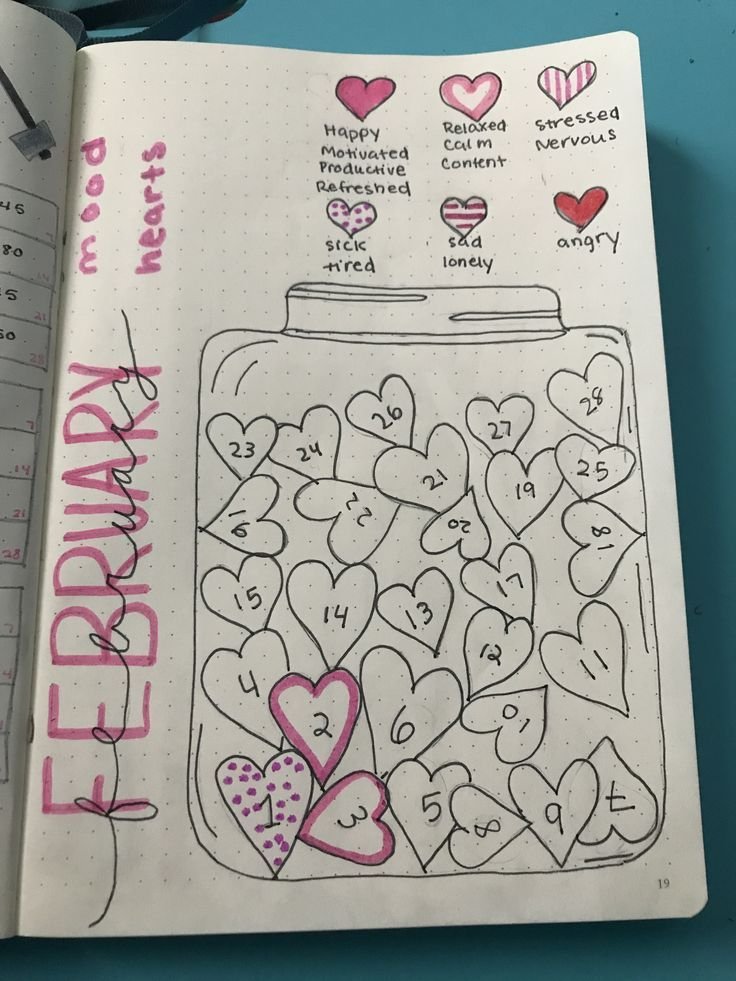 mood
hearts
FEBRUARY
february
Happy
Motivated
Productive
Refreshed
Relaxed
Calm
Content
Stressed
Nervous
sick
tired
sad
lonely
angry
28
26
27
23
24
21
19
25
22
20
16
18
15
14
13
17
4
12
11
2
6
10
1
3
5
8
9
7
19
45
80
14
21
50
28
7
14
21
28
7